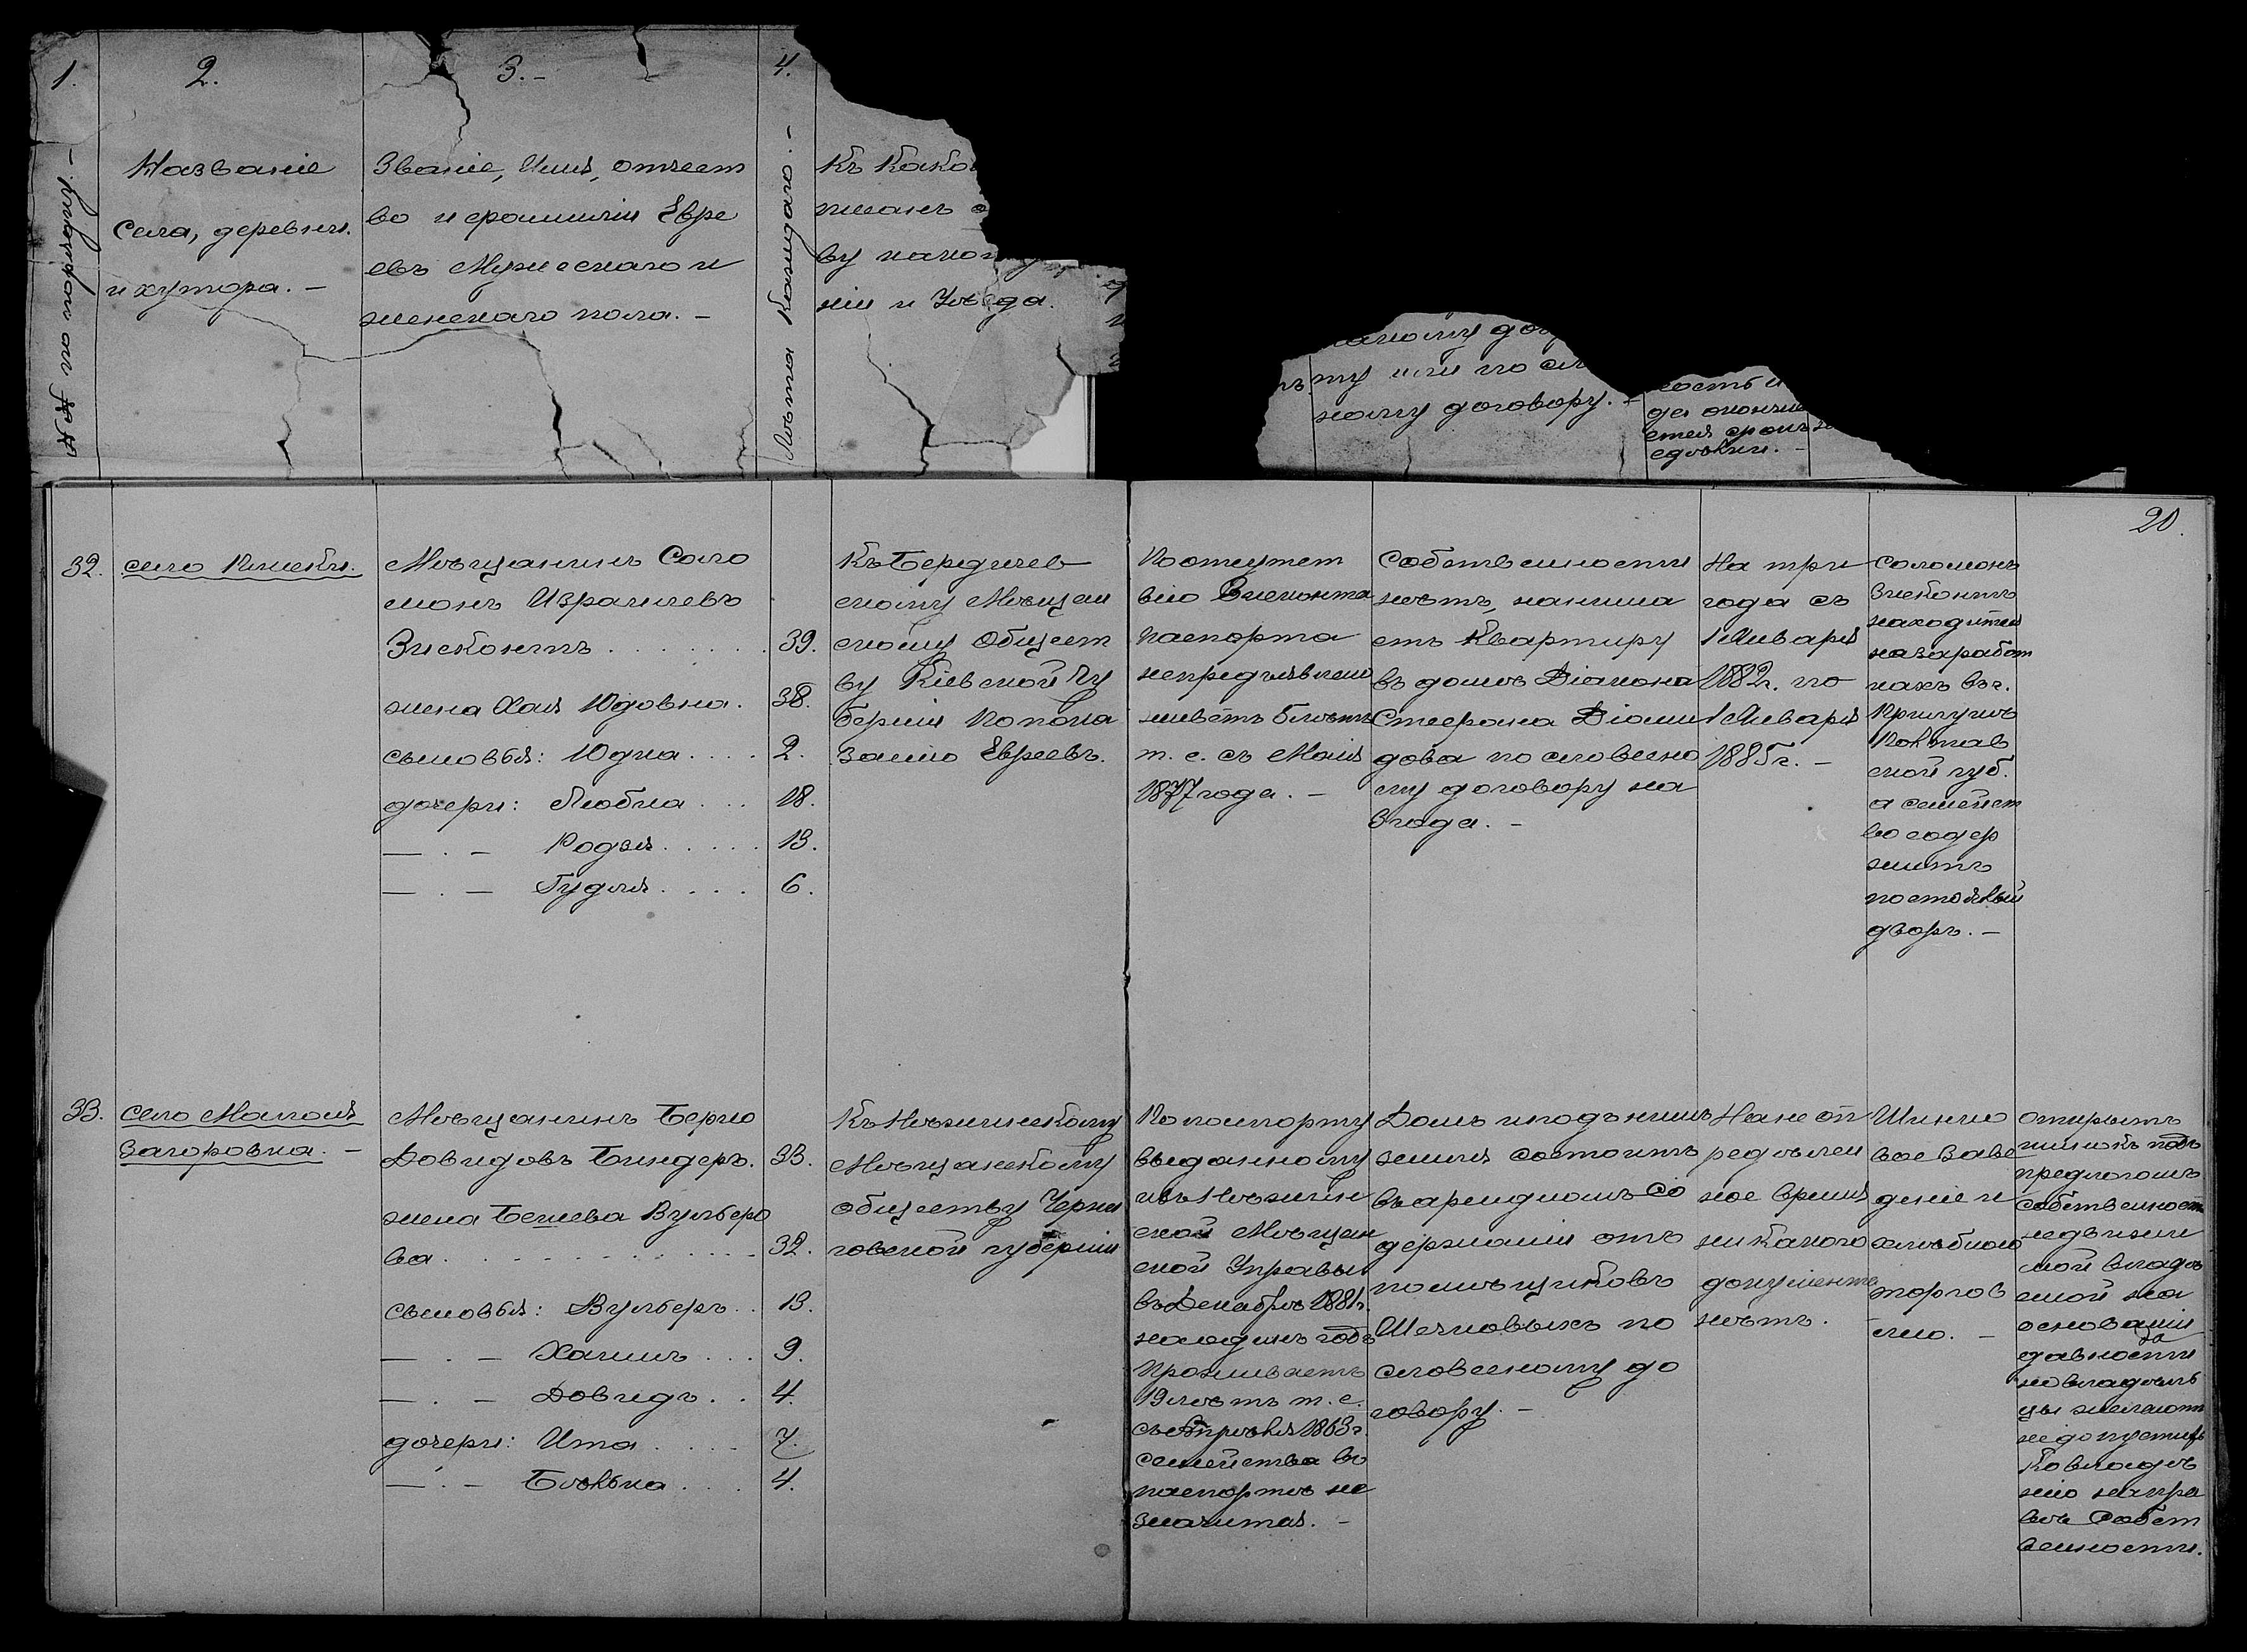 1.
2.
3.-
4.
№№ по порядку. -
Названіе
села, деревни
и хутора. -
Званіе, Имя, отчест
во и фамилія Евре
евъ Мужескаго и
женскаго пола. -
Лѣта Каждаго. -
Къ како
писанъ о
ву како
ніи и Уѣзда.
ту или по сл
ному договору. -
ность и
да оконч
ется срокъ
сдѣлки. -
20.
32.
село
Мѣщанинъ Соло
монъ Израилевъ
39.
жена Хая Юдовна.
38.
сыновья: Юдка....
2.
дочери: Любка...
18.
— . — Родзя.....
13.
— . — Гудля....
6.
Къ Бердичев
скому Мѣщан
скому Общест
ву Кіевской Гу
берніи по пока
занію Евреевъ.
По отсутст
вію
паспорта
непредъявлено
живетъ 6 лѣтъ
т. е. съ Мая
1877 года. -
Собственности
нѣтъ, нанима
етъ Квартиру
въ домѣ Діакона
Стефана
дова по словесно
му договору на
3 года. -
На три
года съ
1 Января
1882 г. по
1 Января
1885 г. -
Соломонъ
находится
на заработ
кахъ въ г.
Прилукѣ
Полтав
ской губ.
а семейст
во содер
житъ
постоялый
дворъ. -
33.
село Малая
Загоровка. -
Мѣщанинъ Берко
Довидовъ Биндеръ.
33.
жена Вульфо
ва..............
32.
сыновья: Вульферъ..
13.
— . — Хаимъ...
9.
— . — Довидъ..
4.
дочери: Ита....
7.
— . — Бѣлька...
4.
Къ Нѣжинскому
Мѣщанскому
обществу Черни
говской губерніи
По паспорту
выданному
изъ Нѣжин
ской Мѣщан
ской Управы
въ Декабрѣ 1881 г.
на одинъ годъ
Проживаетъ
19 лѣтъ т. е.
съ Апрѣля 1863 г.
семейства въ
паспортѣ не
значится. -
Домъ и подъ нимъ
земля состоитъ
въ арендномъ со
держаніи отъ
помѣщиковъ
по
словесному до
говору. -
На не оп
редѣлен
ное время
никакого
документа
нѣтъ. -
Шинко
вое Заве
деніе и
хлѣбною
торгов
лею. -
открытъ
шинокъ подъ
предлогомъ
собственност
недвижи
мой владѣ
емой на
основаніи
давности
но владѣль
цы желаютъ
не допустить
Ко владѣ
нію на пра
вѣ Собст
венности.